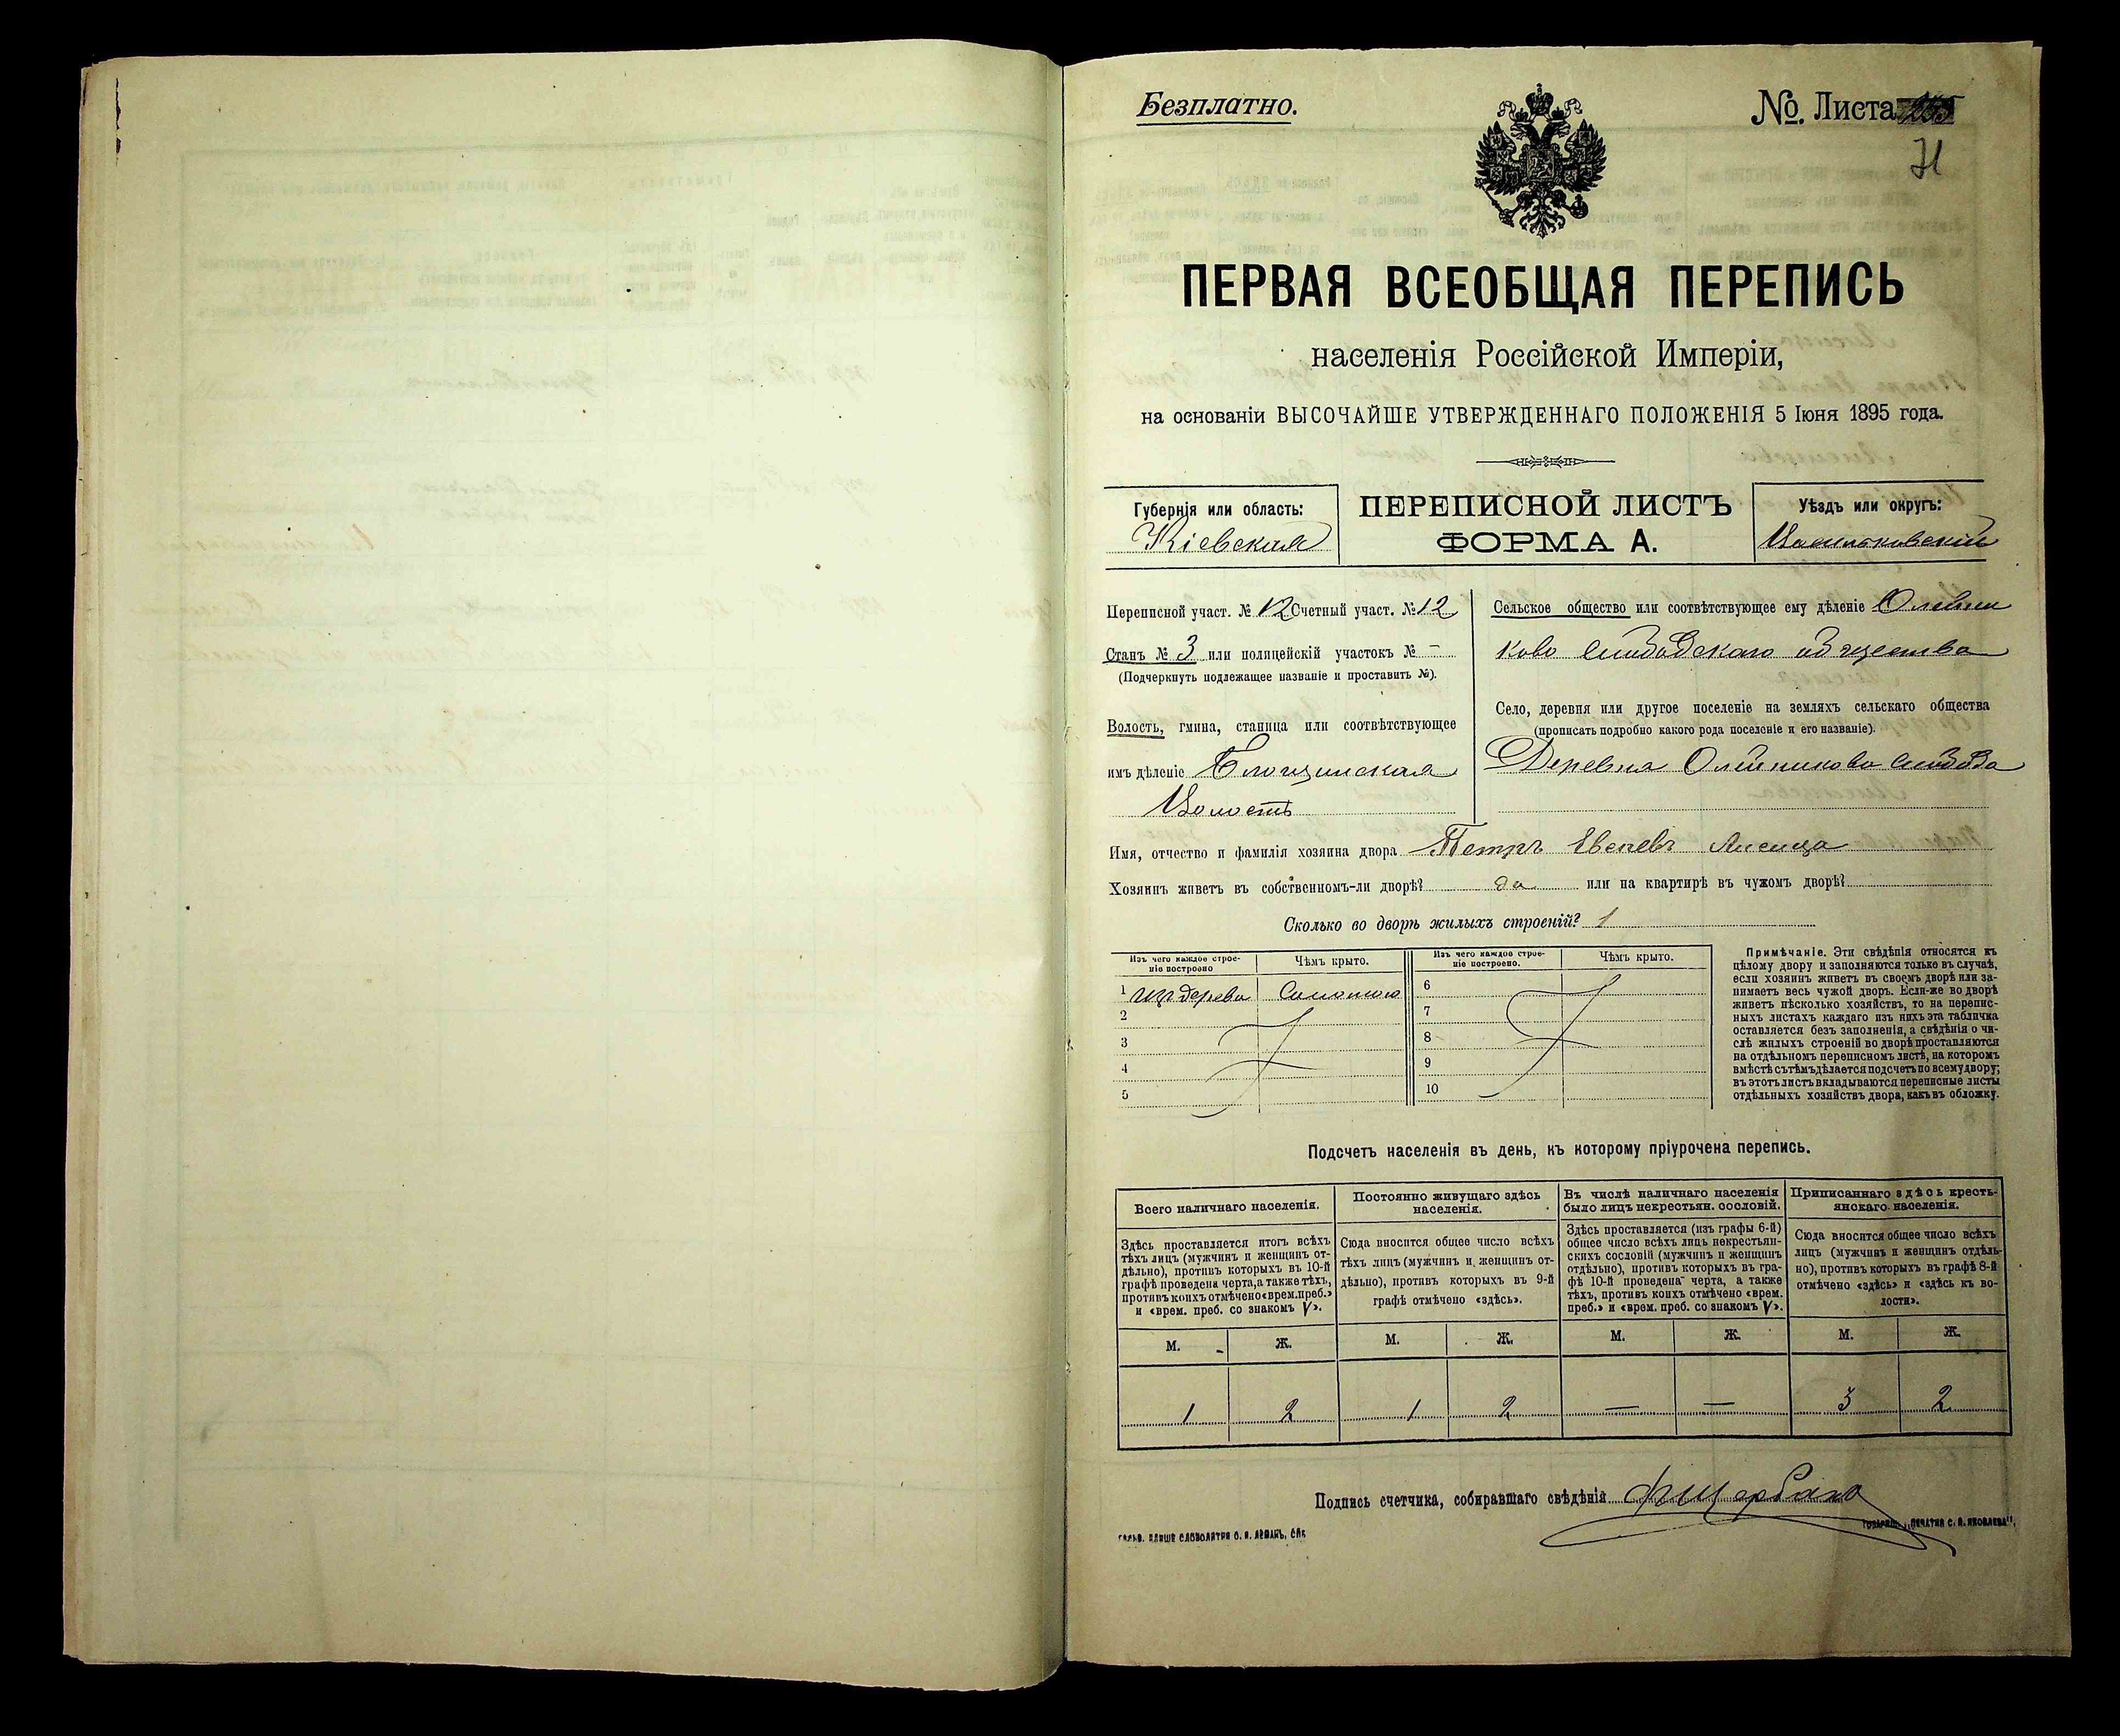 Безплатно.
№. Листа
71
ПЕРВАЯ ВСЕОБЩАЯ ПЕРЕПИСЬ
населенія Россійской Имперіи,
на основаніи ВЫСОЧАЙШЕ УТВЕРЖДЕННАГО ПОЛОЖЕНІЯ 5 Іюня 1895 года.
Губернія или область:
Кіевская
ПЕРЕПИСНОЙ ЛИСТЪ
ФОРМА А.
Уѣздъ или округъ:
Васильковскій
Переписной участ. № 12 Счетный участ. № 12
Станъ № 3 или полицейскій участокъ № —
(Подчеркнуть подлежащее названіе и проставить №).
Волость, гмина, станица или соотвѣтствующее
имъ дѣленіе Блощинская
Волость
Сельское общество или соотвѣтствующее ему дѣленіе Олейни
ково Слободскаго общества
Село, деревня или другое поселеніе на земляхъ сельскаго общества
(прописать подробно какого рода поселеніе и его названіе).
Деревня Олейникова Слобода
Имя, отчество и фамилія хозяина двора Петръ Евсѣевъ Лисица
Хозяинъ живетъ въ собственномъ-ли дворѣ? да или на квартирѣ въ чужомъ дворѣ?
Сколько во дворѣ жилыхъ строеній? 1
Изъ чего каждое строе-
ніе построено
Чѣмъ крыто.
Изъ чего каждое строе-
ніе построено.
Чѣмъ крыто.
1 изъ дерева Соломою
2
3
4
5
6
7
8
9
10
Примѣчаніе. Эти свѣдѣнія относятся къ
цѣлому двору и заполняются только въ случаѣ,
если хозяинъ живетъ въ своемъ дворѣ или за-
нимаетъ весь чужой дворъ. Если-же во дворѣ
живетъ нѣсколько хозяйствъ, то на перепис-
ныхъ листахъ каждаго изъ нихъ эта табличка
оставляется безъ заполненія, а свѣдѣнія о чи-
слѣ жилыхъ строеній во дворѣ проставляются
на отдѣльномъ переписномъ листѣ, на которомъ
вмѣстѣ съ тѣмъ дѣлается подсчетъ по всему двору;
въ этотъ листъ вкладываются переписные листы
отдѣльныхъ хозяйствъ двора, какъ въ обложку.
Подсчетъ населенія въ день, къ которому пріурочена перепись.
Всего наличнаго населенія.
Здѣсь проставляется итогъ всѣхъ
тѣхъ лицъ (мужчинъ и женщинъ от-
дѣльно), противъ которыхъ въ 10-й
графѣ проведена черта, а также тѣхъ,
противъ коихъ отмѣчено «врем. преб.»
и «врем. преб. со знакомъ V».
Постоянно живущаго здѣсь
населенія.
Сюда вносится общее число всѣхъ
тѣхъ лицъ (мужчинъ и женщинъ от-
дѣльно), противъ которыхъ въ 9-й
графѣ отмѣчено «здѣсь».
Въ числѣ наличнаго населенія
было лицъ некрестьян. сословій.
Здѣсь проставляется (изъ графы 6-й)
общее число всѣхъ лицъ некрестьян-
скихъ сословій (мужчинъ и женщинъ
отдѣльно), противъ которыхъ въ гра-
фѣ 10-й проведена черта, а также
тѣхъ, противъ коихъ отмѣчено «врем.
преб.» и «врем. преб. со знакомъ V».
Приписаннаго здѣсь кресть-
янскаго населенія.
Сюда вносится общее число всѣхъ
лицъ (мужчинъ и женщинъ отдѣль-
но), противъ которыхъ въ графѣ 8-й
отмѣчено «здѣсь» и «здѣсь къ во-
лости».
М. Ж. М. Ж. М. Ж. М. Ж.
1 2 1 2 — — 3 2
Подпись счетчика, собиравшаго свѣдѣнія ФЩербако